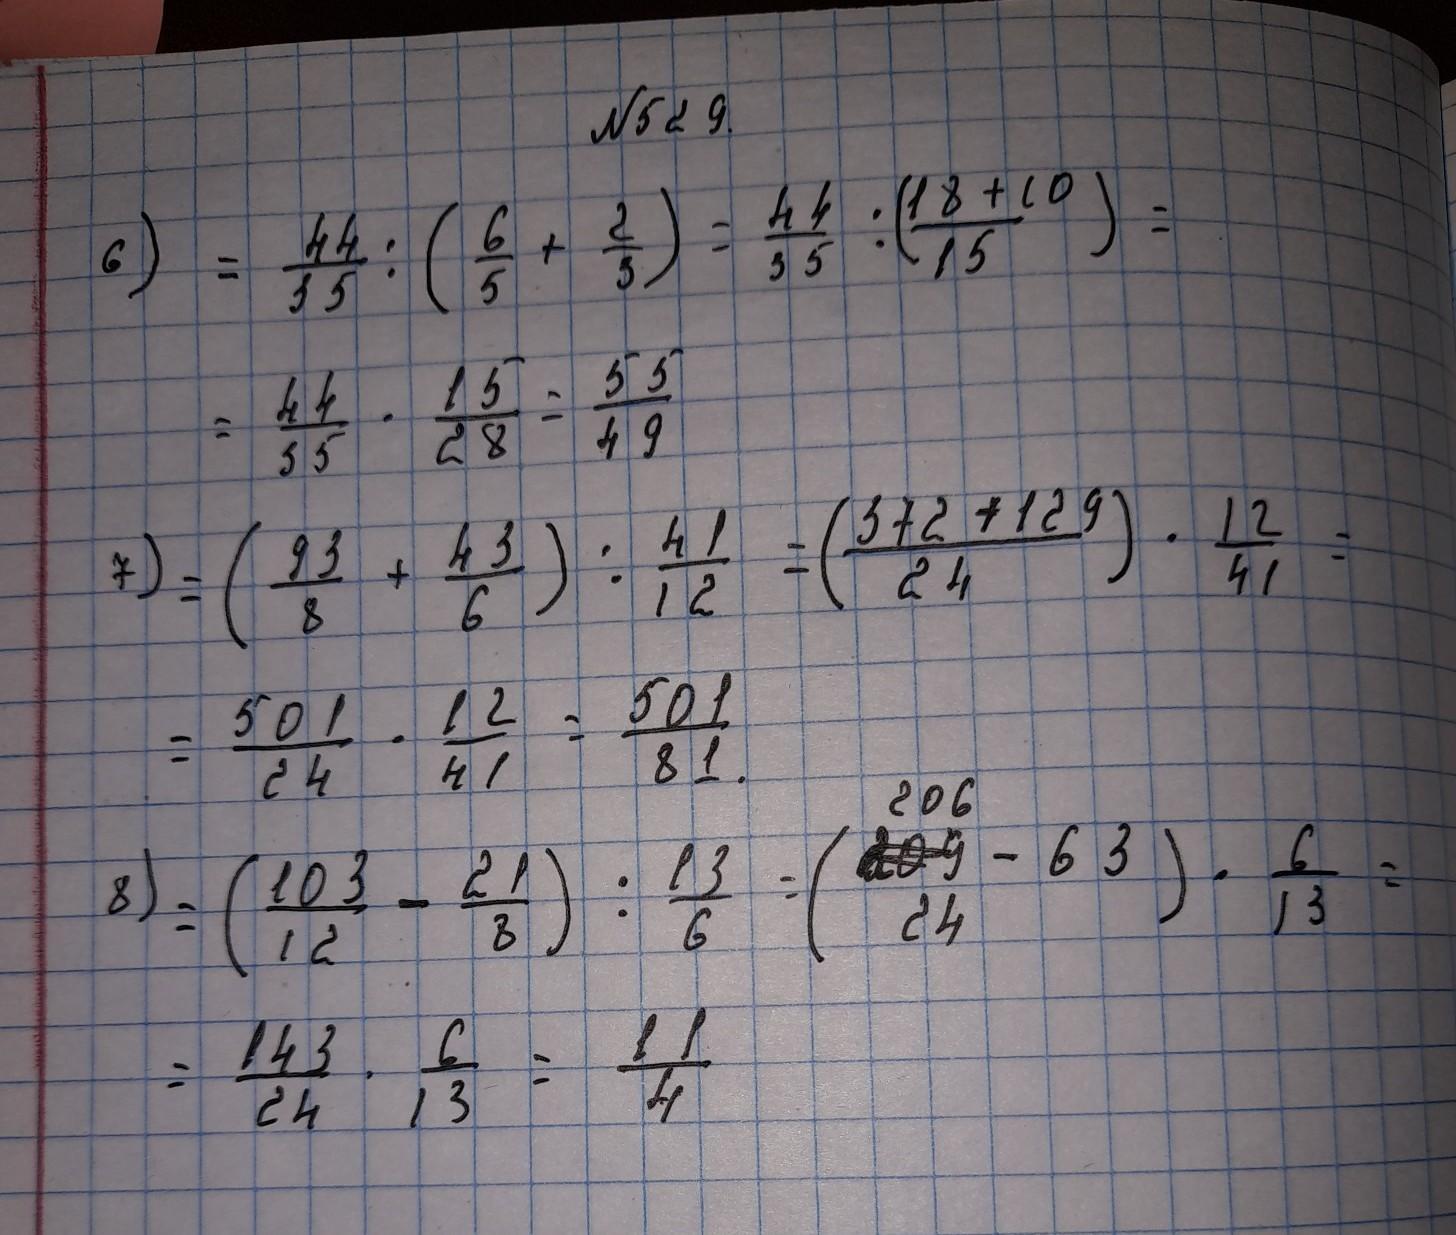 N529.
6) = 44/35 : (6/5 + 2/3) = 44/35 : (18+10/15) =
= 44/35 · 15/28 = 55/49
7) = (93/8 + 43/6) : 41/12 = (372+129/24) · 12/41 =
= 501/24 · 12/41 = 501/81.
8) = (103/12 - 21/8) : 13/6 = (206 - 63/24) · 6/13 =
= 143/24 · 6/13 = 11/4